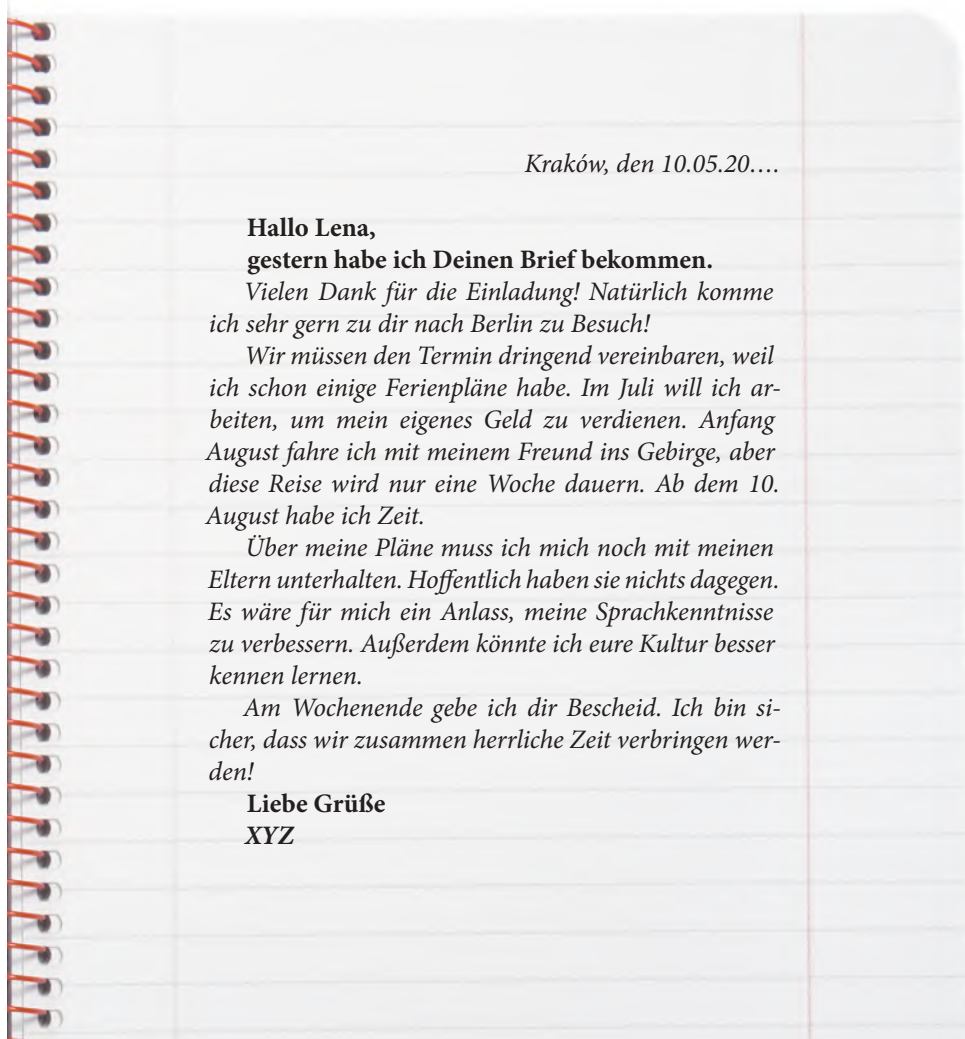 Kraków, den 10.05.20….
Hallo Lena,
gestern habe ich Deinen Brief bekommen.
Vielen Dank für die Einladung! Natürlich komme
ich sehr gern zu dir nach Berlin zu Besuch!
Wir müssen den Termin dringend vereinbaren, weil
ich schon einige Ferienpläne habe. Im Juli will ich ar-
beiten, um mein eigenes Geld zu verdienen. Anfang
August fahre ich mit meinem Freund ins Gebirge, aber
diese Reise wird nur eine Woche dauern. Ab dem 10.
August habe ich Zeit.
Über meine Pläne muss ich mich noch mit meinen
Eltern unterhalten. Hoffentlich haben sie nichts dagegen.
Es wäre für mich ein Anlass, meine Sprachkenntnisse
zu verbessern. Außerdem könnte ich eure Kultur besser
kennen lernen.
Am Wochenende gebe ich dir Bescheid. Ich bin si-
cher, dass wir zusammen herrliche Zeit verbringen wer-
den!
Liebe Grüße
XYZ